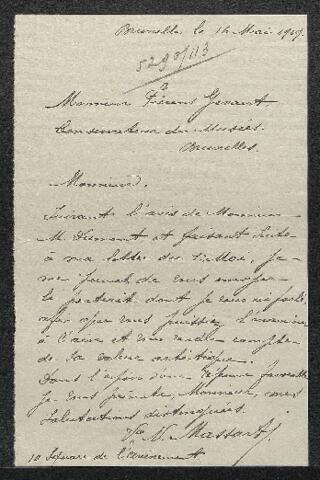 Bruxelles le 14 Mai 1919.
5298/113
à
Monsieur Fierens Gevaert
Conservateur du Musées.
Bruxelles.
Monsieur.
Suivant l'avis de Monsieur
M. Dumont et faisant suite
à ma lettre du 1 Mai, je
me permet de vous envoyer
le portrait dont je vous ai parlé,
afin que vous puissiez l'examiner
à l'aise et vous rendre compte
de sa valeur artistique.
Dans l'espoir d'une réponse favorable
je vous présente, Monsieur, mes
salutations distinguées.
Vve N. Massart
10 Square de l'avenement.